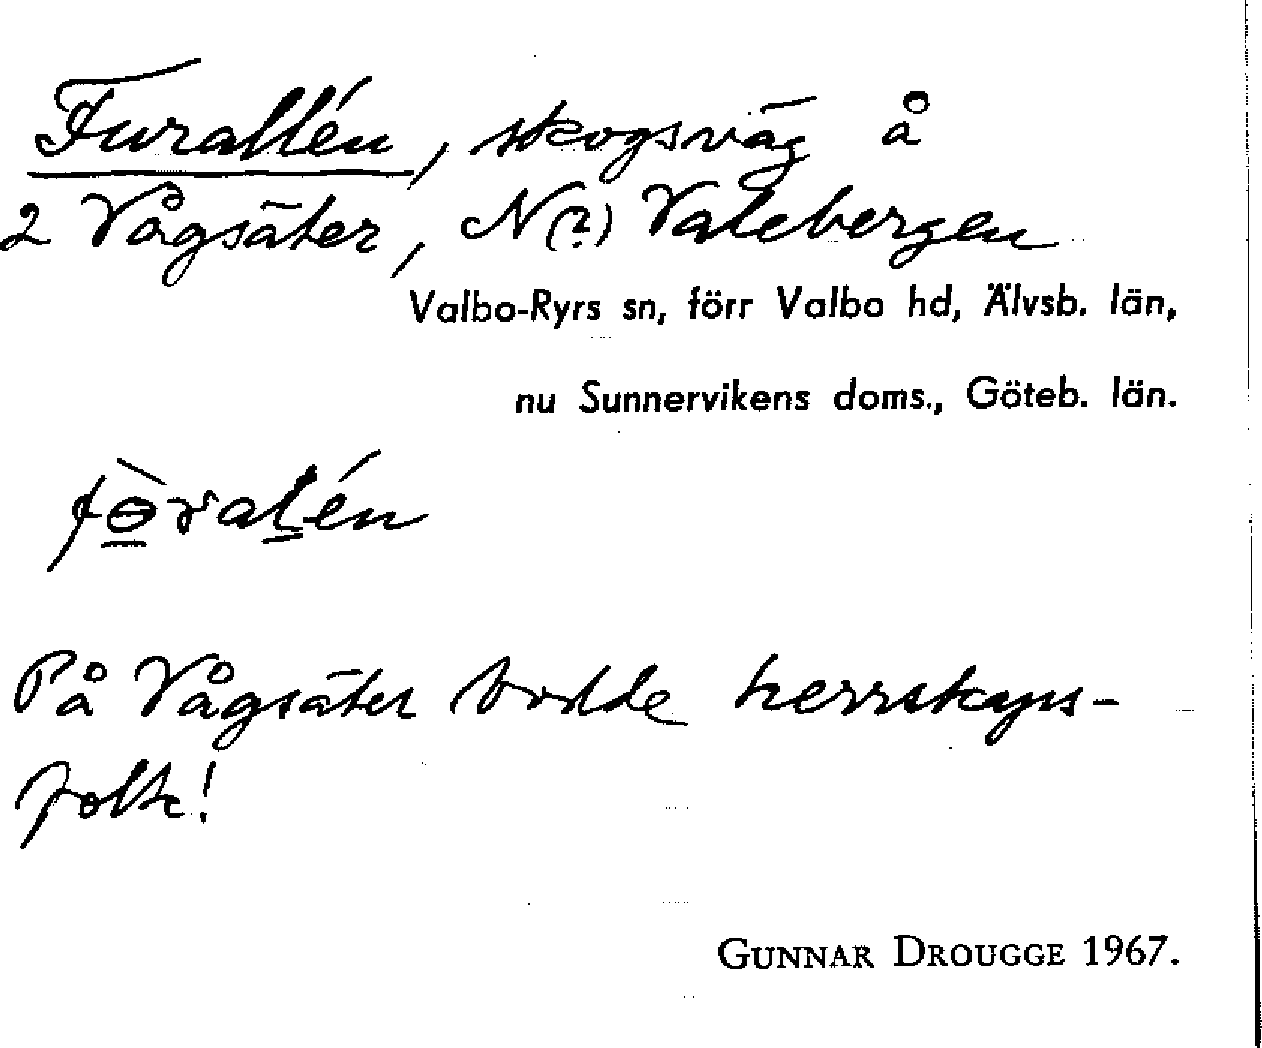 Furallén, skogsväg å
2 Vågsäter, N(?) Valebergen
Valbo-Ryrs sn, förr Valbo hd, Älvsb. län,
nu Sunnervikens doms., Göteb. län.
På Vågsäter bodde herrskaps-
folk!
GUNNAR DROUGGE 1967.